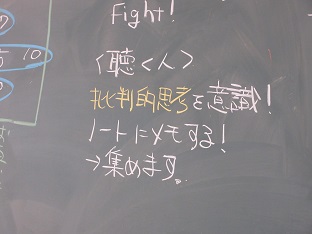 Fight!
〈聴く人〉
批判的思考を意識!
ノートにメモする!
→集めます。
10